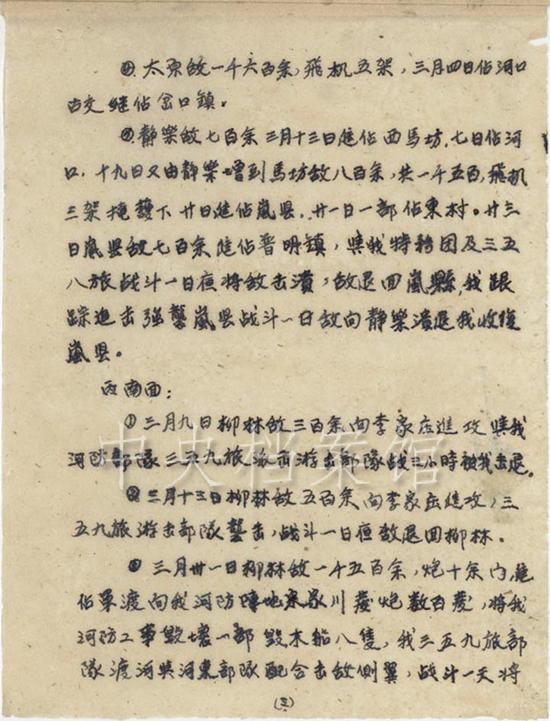 ④太原敌一千六百余,飛机五架,三月四日佔河口
古交継佔岔口鎮。
静樂敌七百余三月十三日進佔西馬坊,七日佔河
口,十九日又由静樂增到馬坊敌八百余,共一千五百,飛机
三架掩護下廿日進佔嵐县,廿一日一部佔東村。廿三
日嵐县敌七百余進佔普明镇,與我特務团及三五
八旅战斗一日夜将敌击潰,敌退回嵐縣,我跟
踪追击強襲嵐县战斗一日敌向静樂潰退我收復
嵐县。
西南面:
①三月九日柳林敌三百余向李家庄進攻與我
河防部隊三五九旅派击游击部隊战三小時被我击退。
②三月十三日柳林敌五百余向李家庄進攻,三
五九旅游击部隊襲击,战斗一日夜敌退回柳林。
③三月廿一日柳林敌一千五百余,炮十余门,進
佔軍渡向我河防陣地宋家川發炮数百發,将我
河防工事毁壞一部毁木船八隻,我三五九旅部
隊渡河與河東部隊配合击敌側翼,战斗一天将
(三)
中央档案馆